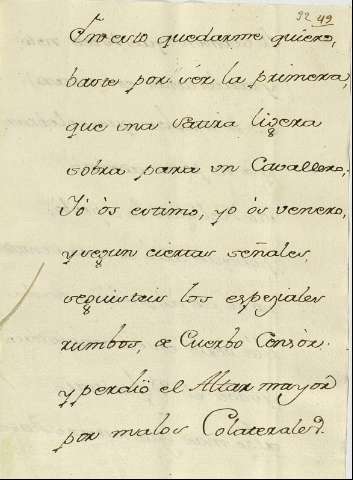 92 49
En esto quedarme quiero,
baste por sér la primera,
que una Satira ligera
sobra para un Cavallero;
Yó ós estimo, yo ós venero,
y segun ciertas señales,
seguisteis los espeziales
rumbos, de Cuerbo Censòr.
y perdiò el Altar mayor
por malos Colaterales.